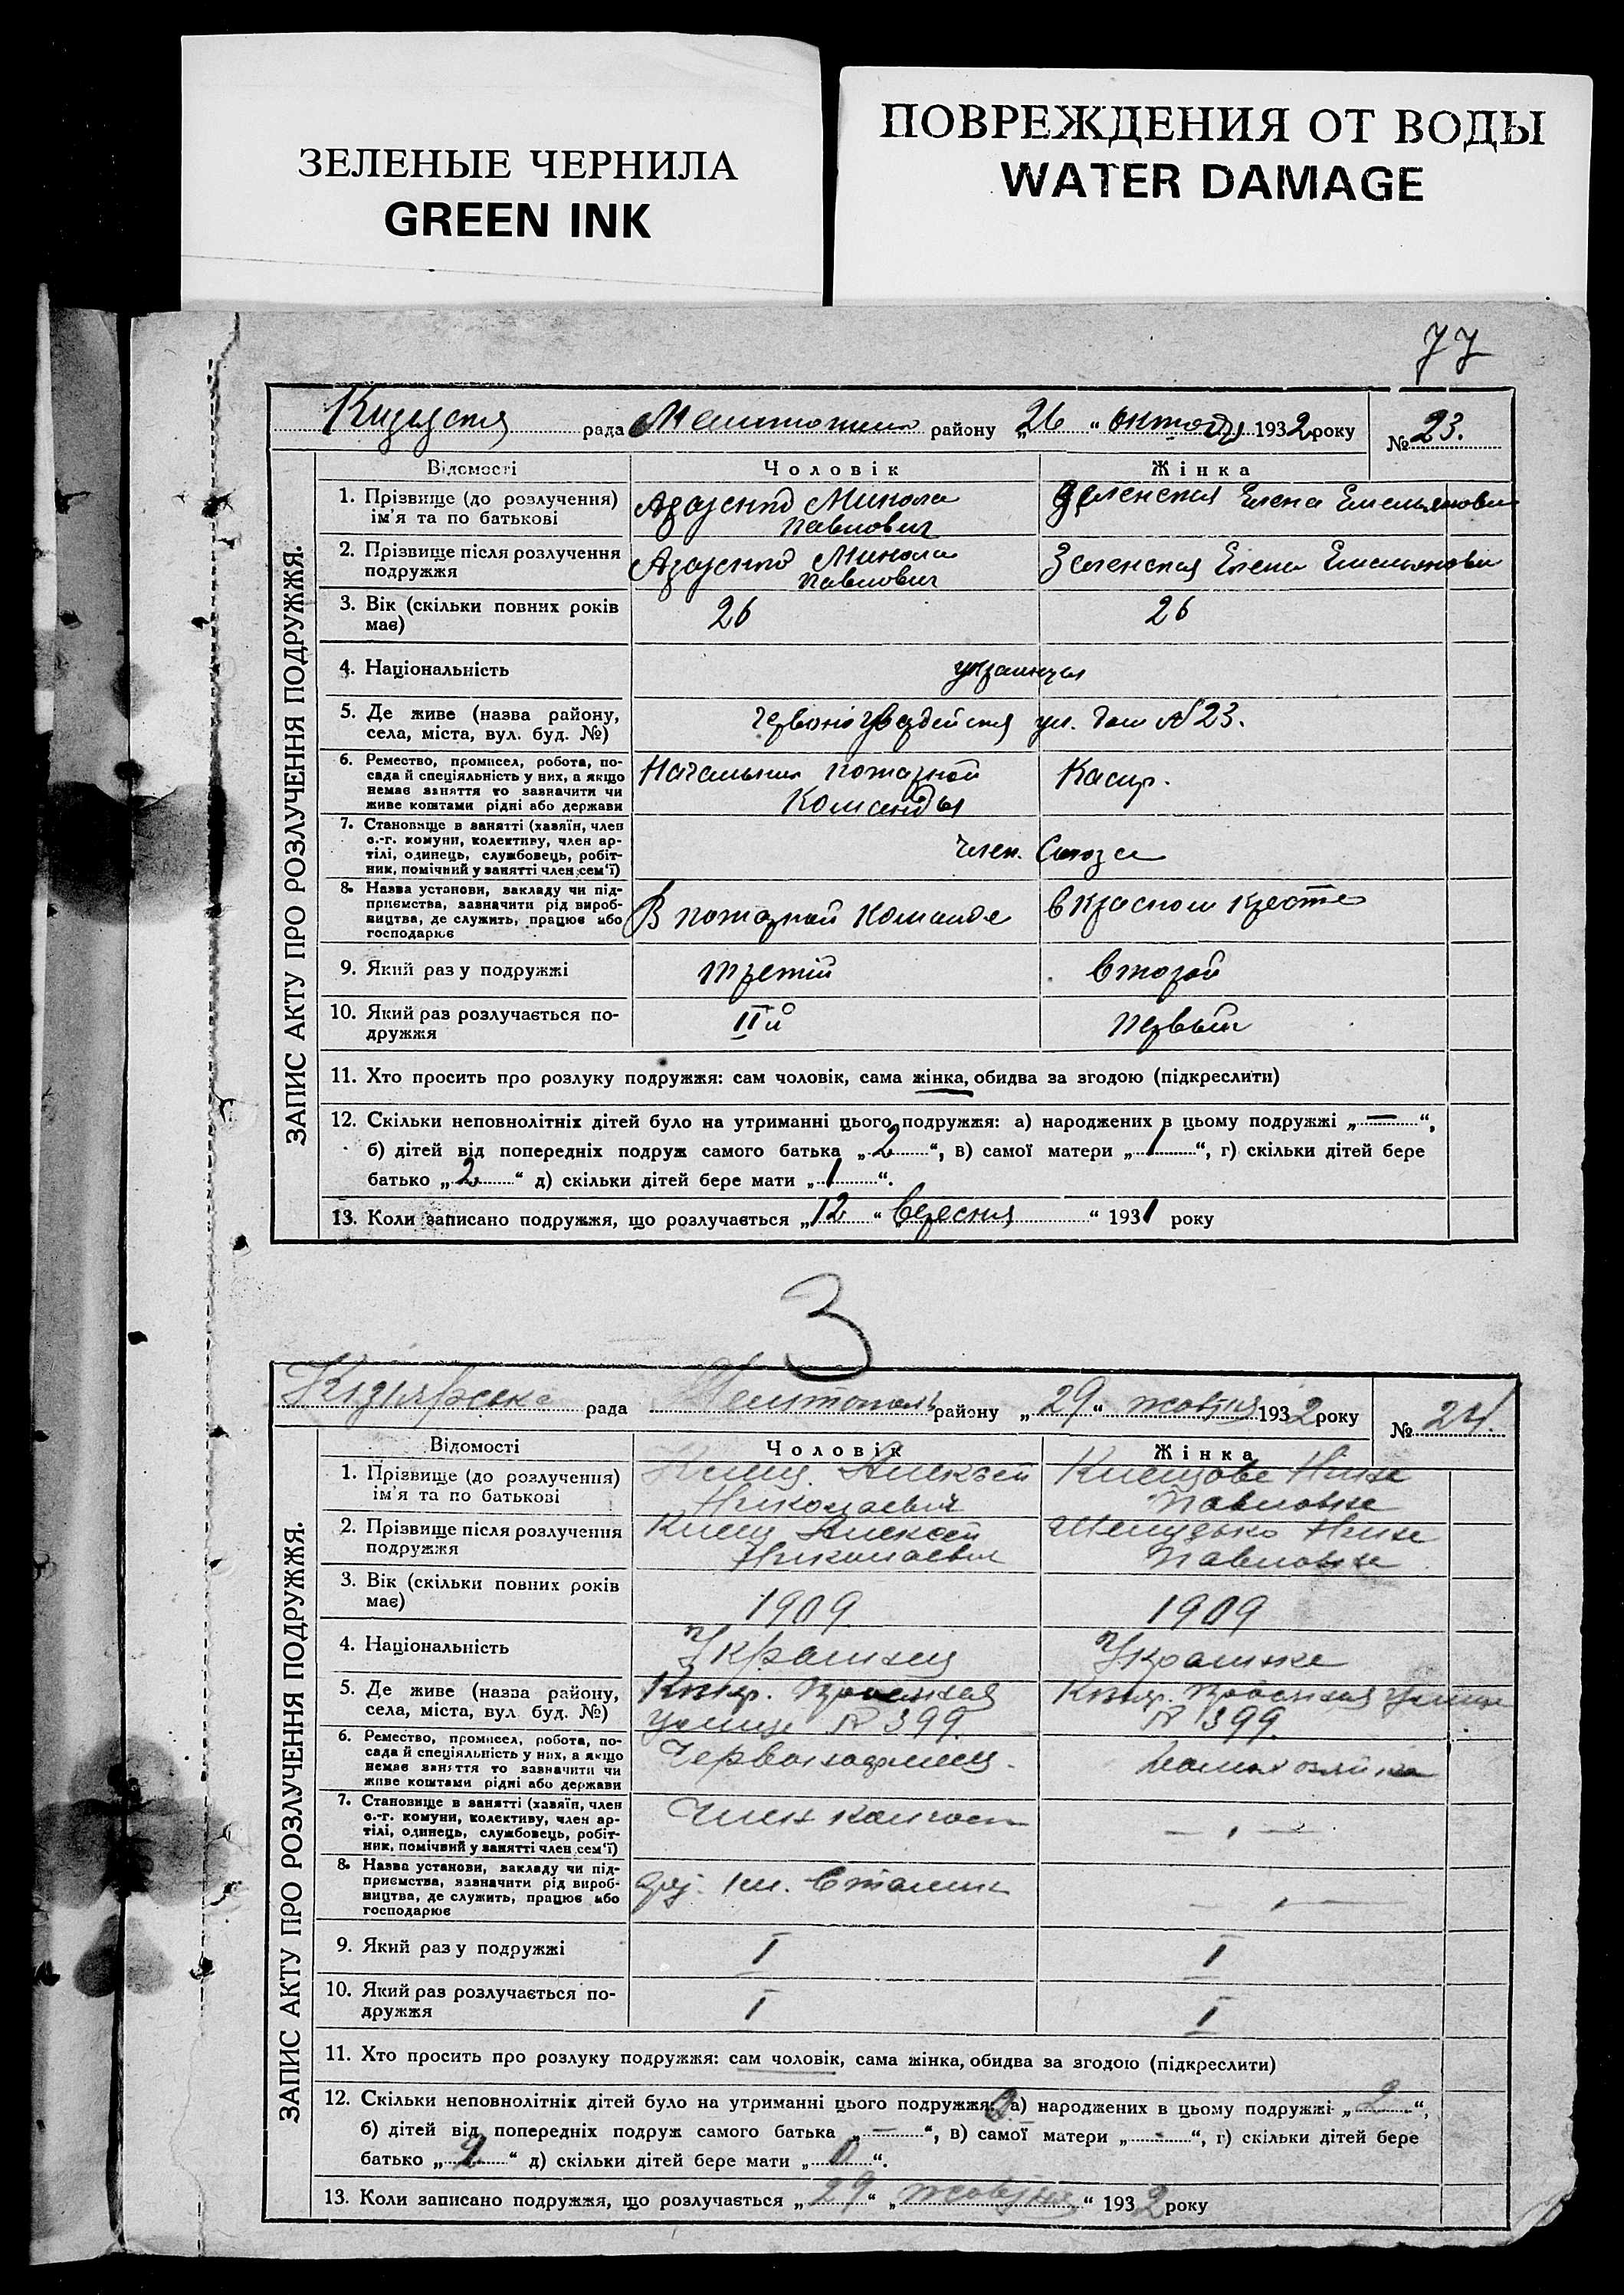 ЗЕЛЕНЫЕ ЧЕРНИЛА
GREEN INK
ПОВРЕЖДЕНИЯ ОТ ВОДЫ
WATER DAMAGE
77
ЗАПИС АКТУ ПРО РОЗЛУЧЕННЯ ПОДРУЖЖЯ.
рада району „26“ 1932 року № 23.
Відомості Чоловік Жінка
1. Прізвище (до розлучення) Микола Елена
ім'я та по батькові Павлович
2. Прізвище після розлучення Микола Зеленская Елена
подружжя Павлович
3. Вік (скільки повних років 26 26
має)
4. Національність украинцы
5. Де живе (назва району, Червоногвардейская ул. дом №23.
села, міста, вул. буд. №)
6. Ремество, промисел, робота, по- Начальник пожарной Касир.
сада й спеціяльність у них, а якщо Команды
немає заняття то зазначити чи
живе коштами рідні або держави
7. Становище в занятті (хазяїн, член
с.-г. комуни, колективу, член ар- член. Союза
тілі, одинець, службовець, робіт-
ник, помічний у занятті член сем'ї)
8. Назва установи, закладу чи під- В пожарной команде в красном кресте
приємства, зазначити рід вироб-
ництва, де служить, працює або
господарює
9. Який раз у подружжі третий второй
10. Який раз розлучається по- IIй первый
дружжя
11. Хто просить про розлуку подружжя: сам чоловік, сама жінка, обидва за згодою (підкреслити)
12. Скільки неповнолітніх дітей було на утриманні цього подружжя: а) народжених в цьому подружжі „—“,
б) дітей від попередніх подруж самого батька „2“, в) самої матери „1“, г) скільки дітей бере
батько „2“ д) скільки дітей бере мати „1“.
13. Коли записано подружжя, що розлучається „12“ „вересня“ 1931 року
3
ЗАПИС АКТУ ПРО РОЗЛУЧЕННЯ ПОДРУЖЖЯ.
Кізіярська рада Мелитополь району „29“ жовтня 1932 року № 24.
Відомості Чоловік Жінка
1. Прізвище (до розлучення) Алексей Нина
ім'я та по батькові Николаевич Павловна
2. Прізвище після розлучення Алексей Нина
подружжя Николаевич Павловна
3. Вік (скільки повних років
має) 1909 1909
4. Національність Украинец Украинка
5. Де живе (назва району,
села, міста, вул. буд. №) улица № 399. № 399.
6. Ремество, промисел, робота, по-
сада й спеціяльність у них, а якщо
немає заняття то зазначити чи
живе коштами рідні або держави
7. Становище в занятті (хазяїн, член Член
с.-г. комуни, колективу, член ар-
тілі, одинець, службовець, робіт-
ник, помічний у занятті член сем'ї)
8. Назва установи, закладу чи під-
приємства, зазначити рід вироб-
ництва, де служить, працює або
господарює
9. Який раз у подружжі I I
10. Який раз розлучається по- I I
дружжя
11. Хто просить про розлуку подружжя: сам чоловік, сама жінка, обидва за згодою (підкреслити)
12. Скільки неповнолітніх дітей було на утриманні цього подружжя: а) народжених в цьому подружжі „2“,
б) дітей від попередніх подруж самого батька „—“, в) самої матери „-“, г) скільки дітей бере
батько „2“ д) скільки дітей бере мати „0“.
13. Коли записано подружжя, що розлучається „29“ „жовтня“ 1932 року